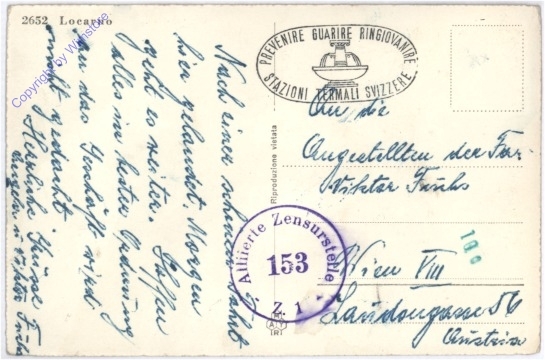 2652 Locarno
Copyright by Wienstore
PREVENIRE GUARIRE RINGIOVANIRE
STAZIONI TERMALI SVIZZERE
Nach einer schönen Fahrt
hier gelandet, Morgen
geht es weiter. Hoffen
alles in bester Ordnung
An das Geschäft wird
nicht gedacht
Herzliche Grüsse
Viktor Fuchs
Riproduzione vietata
An die
Angestellten der Fa.
Viktor Fuchs
Wien VIII
Laudongasse 56
Austria
Alliierte Zensurstelle
153
Z. 1